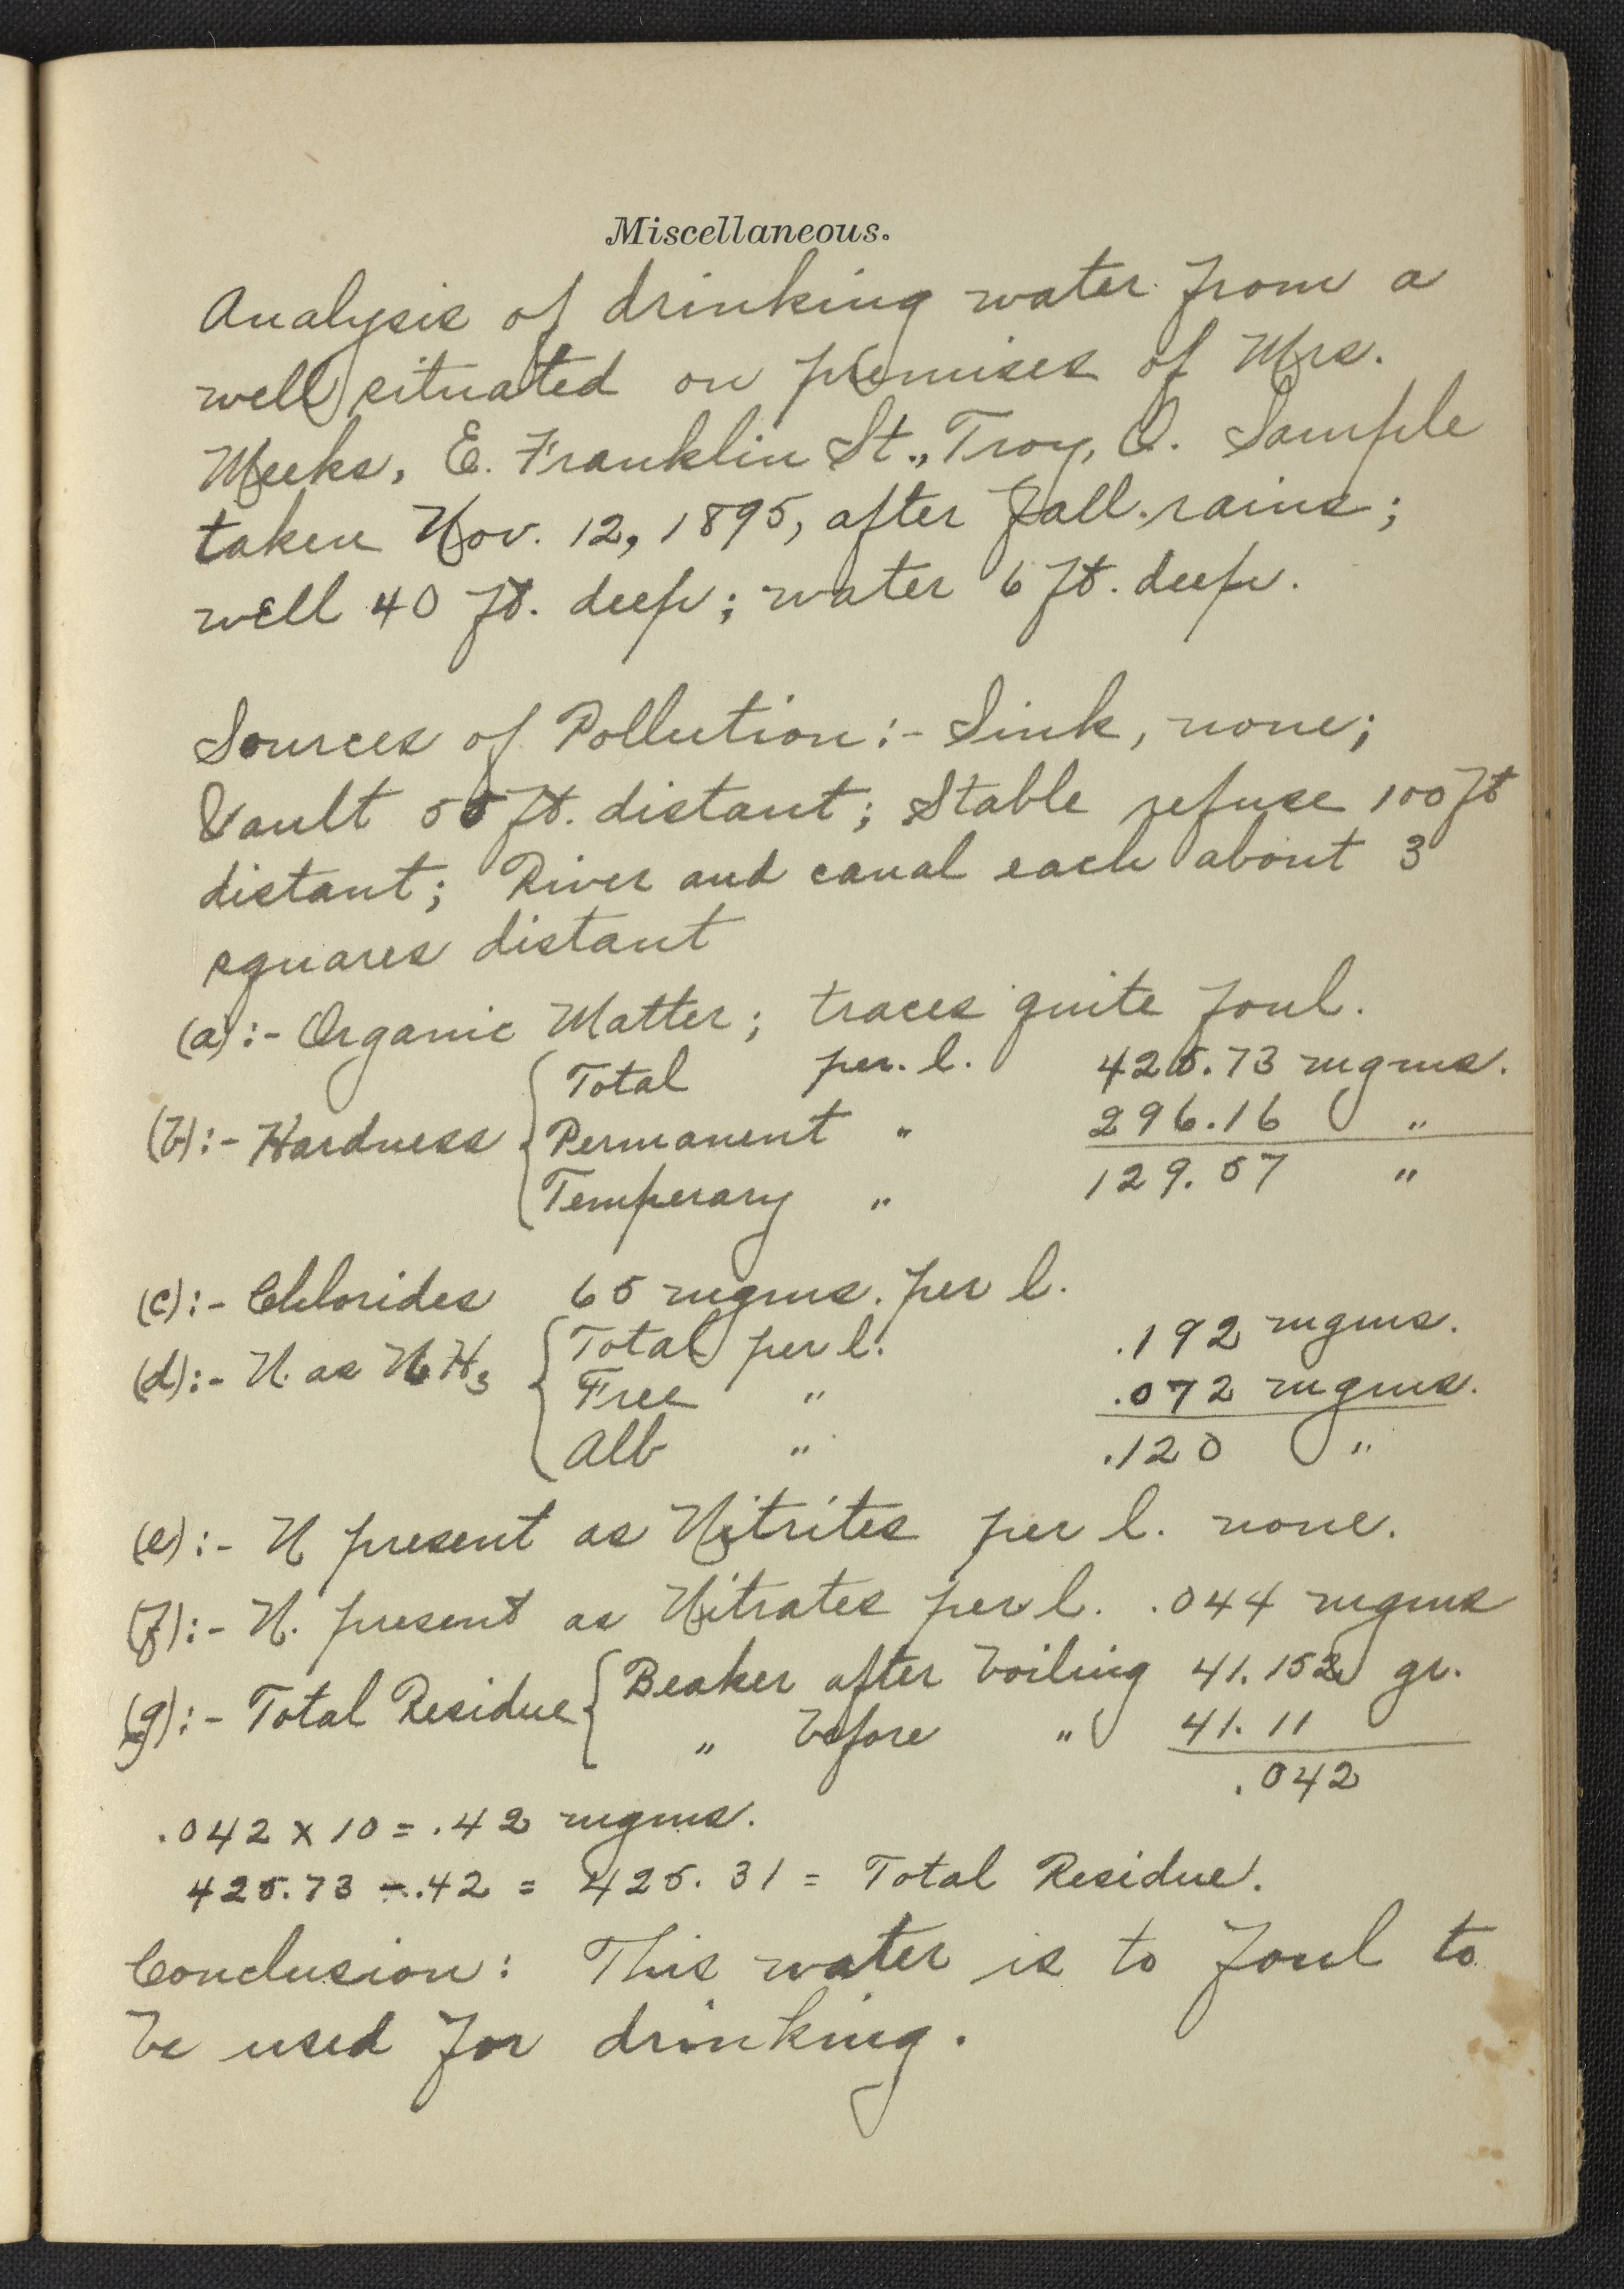 Miscellaneous.
Analysis of drinking water from a
well situated on premises of Mrs.
Meeks, E. Franklin St., Troy, O. Sample
taken Nov. 12, 1895, after Fall rains;
well 40 ft. deep; water 6 ft. deep.
Sources of Pollution:- Sink, none;
Vault 55 ft. distant; Stable refuse 100 ft
distant; River and canal each about 3
squares distant
(a):- Organic Matter; traces quite foul.
Total per. l. 425.73 mgms.
(b):- Hardness Permanent " 296.16 "
Temperary " 129.57 "
(c):- Chlorides 65 mgms. per l.
Total per l. .192 mgms.
(d):- N. as NH3 Free " .072 mgms.
Alb " .120 "
(e):- N present as Nitrites per l. none.
(f):- N. present as Nitrates per l. .044 mgms
(g):- Total Residue Beaker after boiling 41.152 gr.
" before " 41.11
.042
.042 x 10 = .42 mgms.
425.73 - .42 = 425.31 = Total Residue.
Conclusion: This water is to foul to
be used for drinking.